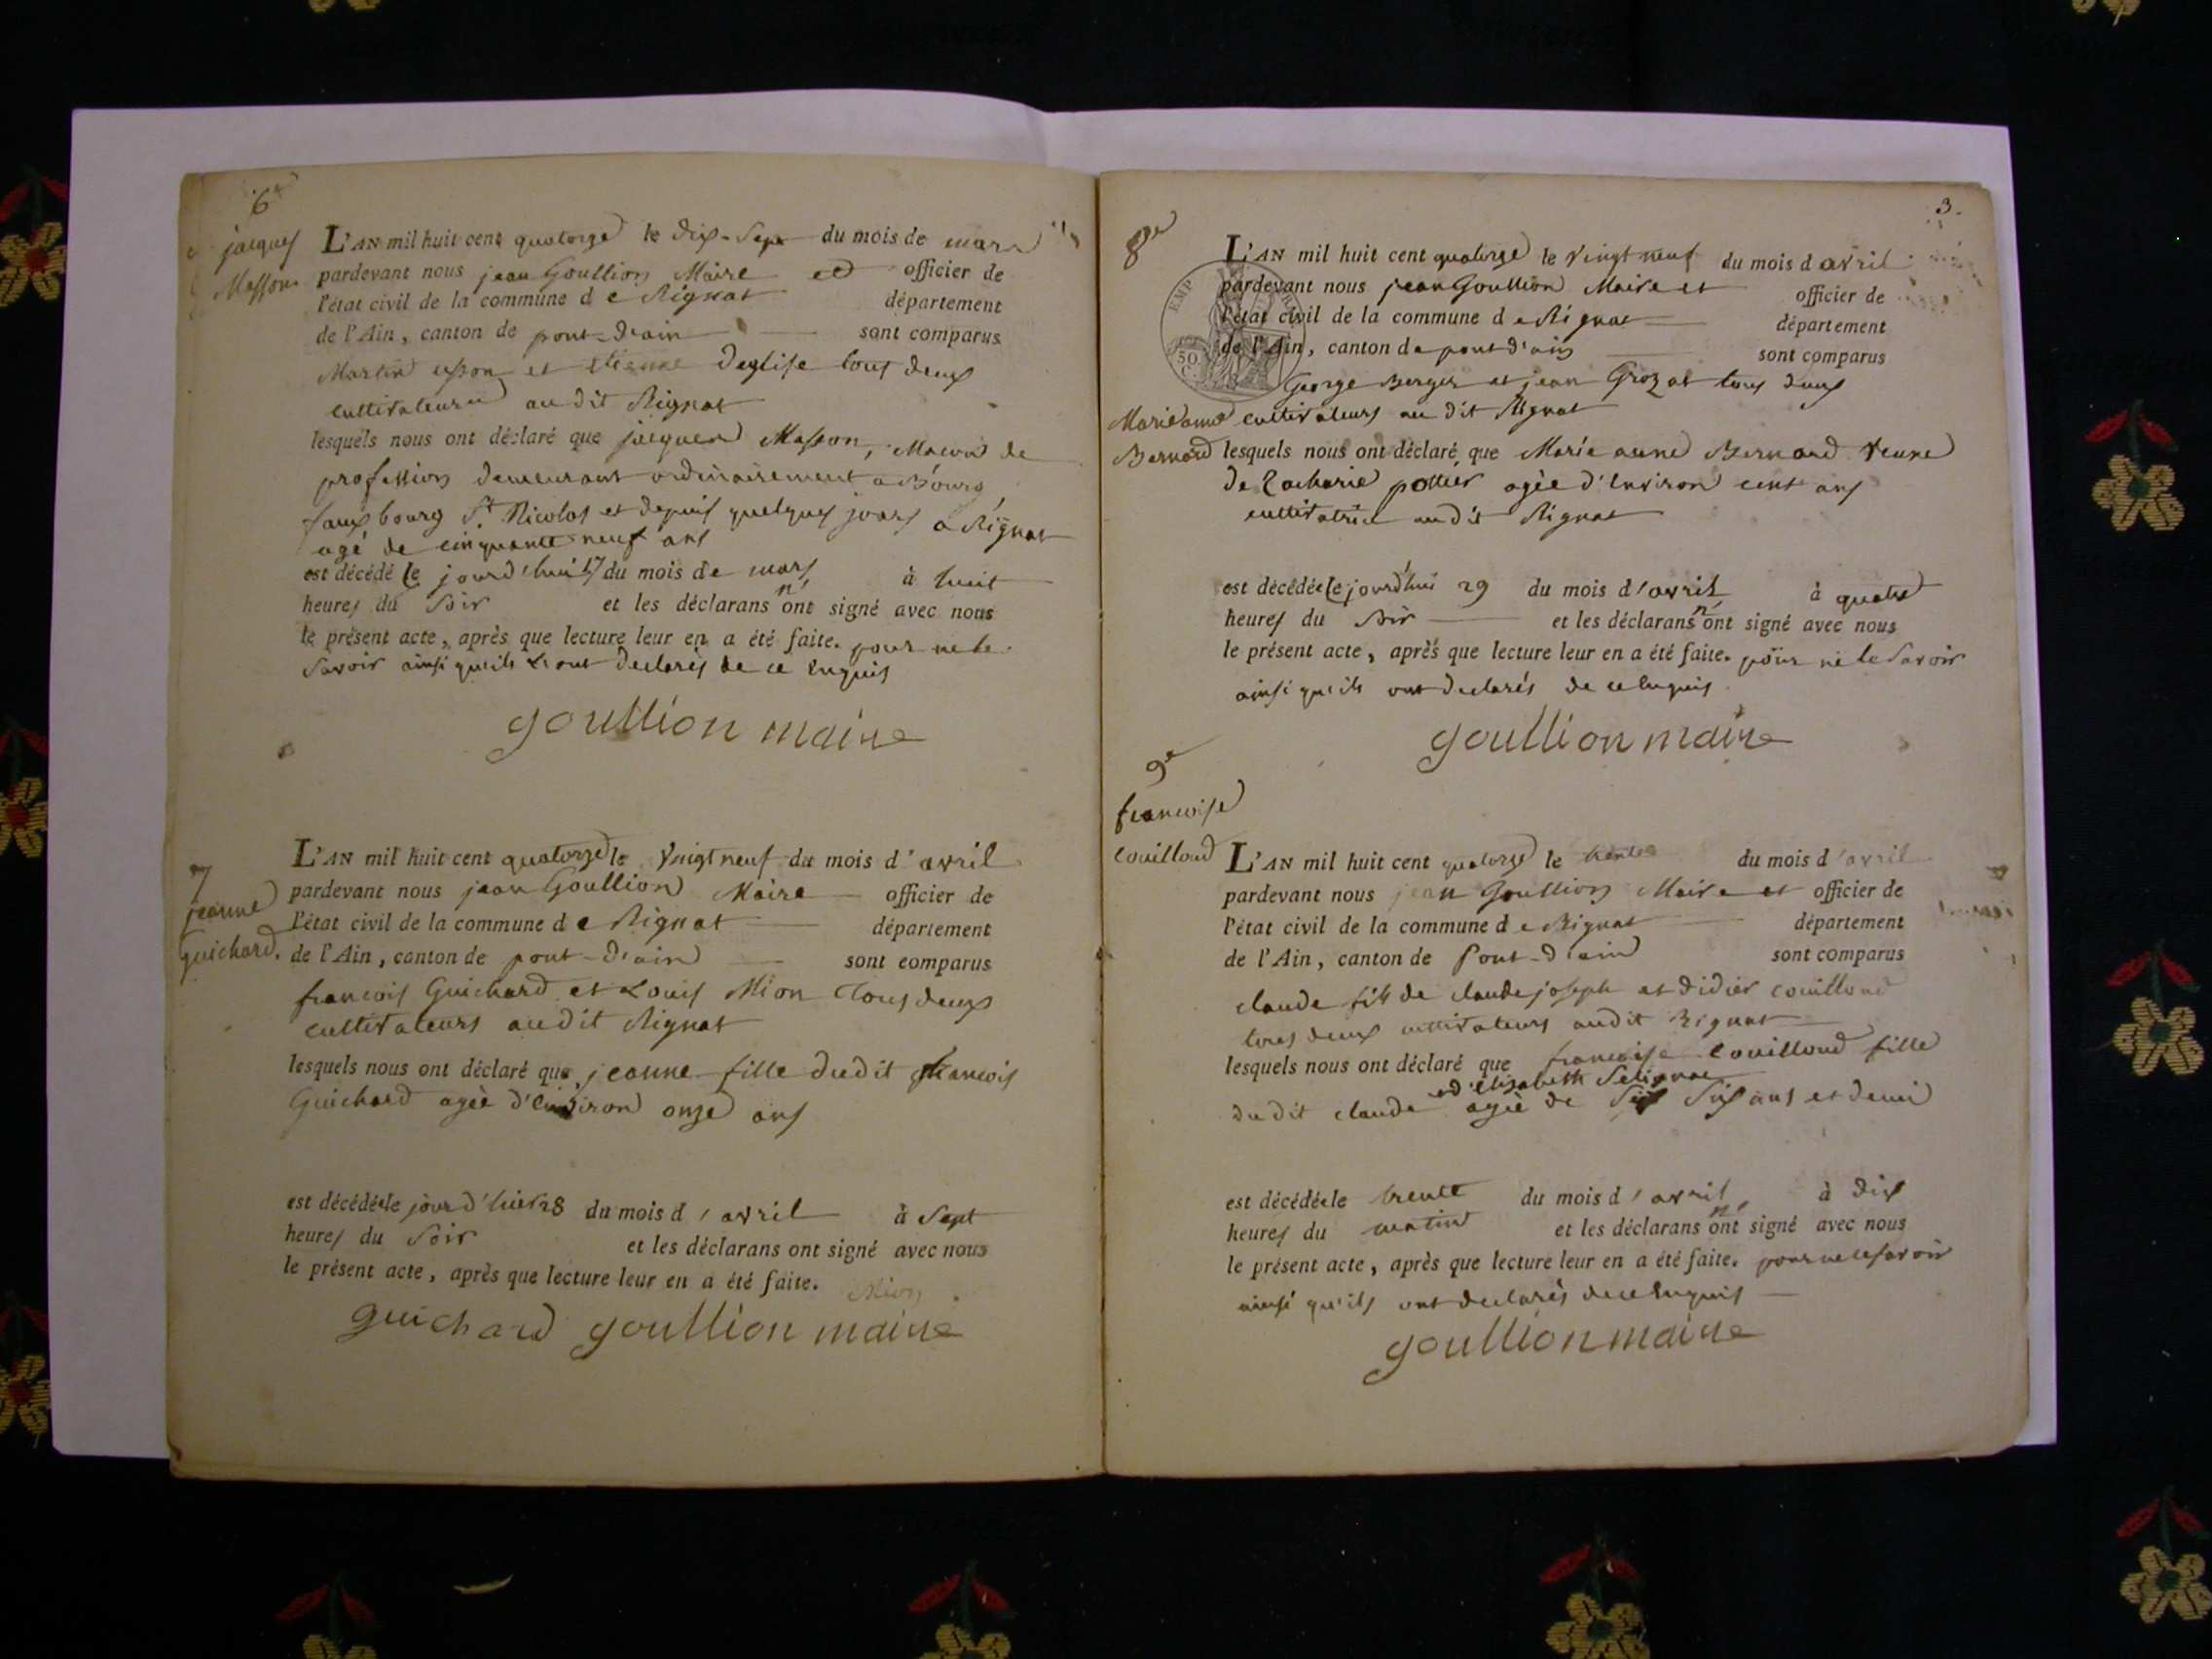 6e
jacques
Masson
L'AN mil huit cent quatorze le dix-sept du mois de mars
pardevant nous jean Goullion Maire et officier de
l'état civil de la commune de Rignat département
de l'Ain, canton de pont-d'ain sont comparus
Martin et etienne deglise tous deux
cultivateurs au dit Rignat
lesquels nous ont déclaré que jacques Masson, Macon de
profession demeurant ordinairement a Bourg,
faux bourg St. Nicolas et depuis quelques jours a Rignat
agé de cinquante neuf ans
est décédé le jourd'hui 17 du mois de mars à huit
heures du soir et les déclarans n'ont signé avec nous
le présent acte, après que lecture leur en a été faite. pour ne le
savoir ainsi qu'ils l'ont declarés de ce enquis
goullion maire
7
jeanne
guichard.
L'AN mil huit cent quatorze le vingt neuf du mois d'avril
pardevant nous jean Goullion Maire officier de
l'état civil de la commune de Rignat département
de l'Ain, canton de pont-d'ain sont comparus
francois Guichard et Louis Mion tous deux
cultivateurs audit Rignat
lesquels nous ont déclaré que jeanne fille dudit francois
Guichard agée d'environ onze ans
est décédée le jourd'hier 28 du mois d'avril à sept
heures du soir et les déclarans ont signé avec nous
le présent acte, après que lecture leur en a été faite. Mion
guichard goullion maire
3.
8e
EMP
50
C.
L'AN mil huit cent quatorze le vingt neuf du mois d avril
pardevant nous jean Goullion Maire et officier de
l'état civil de la commune de Rignat département
de l'Ain, canton de pont d'ain sont comparus
George Berger et jean Grozat tous deux
cultivateurs au dit Rignat
Marie anne
Bernard
lesquels nous ont déclaré que Marie anne Bernard veuve
de Zacharie pottier agée d'environ cent ans
cultivatrice audit Rignat
est décédée le jourd'hui 29 du mois d'avril à quatre
heures du soir et les déclarans n'ont signé avec nous
le présent acte, après que lecture leur en a été faite. pour ne le savoir
ainsi qu'ils ont declarés de ce enquis
goullion maire
9e
francoise
couilloud
L'AN mil huit cent quatorze le trente du mois d'avril
pardevant nous jean Goullion Maire et officier de
l'état civil de la commune de Rignat département
de l'Ain, canton de Pont-d'ain sont comparus
claude fils de claude joseph et didier couilloud
tous deux cultivateurs audit Rignat
lesquels nous ont déclaré que francoise couilloud fille
et d'elisabeth
du dit claude agée de six ans et demi
est décédée le trente du mois d'avril à dix
heures du matin et les déclarans n'ont signé avec nous
le présent acte, après que lecture leur en a été faite. pour ne le savoir
ainsi qu'ils ont declarés de ce enquis
goullion maire